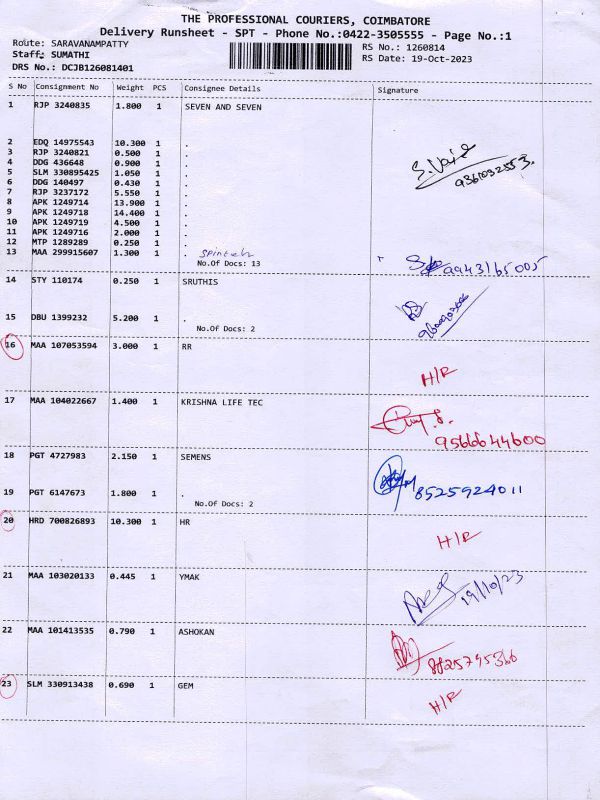 THE PROFESSIONAL COURIERS, COIMBATORE
Delivery Runsheet - SPT - Phone No.:0422-3505555 - Page No.:1
Route: SARAVANAMPATTY RS No.: 1260814
Staff: SUMATHI RS Date: 19-Oct-2023
DRS No.: DCJB126081401
S No Consignment No Weight PCS Consignee Details Signature
1 RJP 3240835 1.800 1 SEVEN AND SEVEN
2 EDQ 14975543 10.300 1 .
3 RJP 3240821 0.500 1 .
4 DDG 436648 0.900 1 .
5 SLM 330895425 1.050 1 .
6 DDG 140497 0.430 1 .
7 RJP 3237172 5.550 1 .
8 APK 1249714 13.900 1 .
9 APK 1249718 14.400 1 .
10 APK 1249719 4.500 1 .
11 APK 1249716 2.000 1 .
12 MTP 1289289 0.250 1 .
13 MAA 299915607 1.300 1 .
No.Of Docs: 13 9943165005
14 STY 110174 0.250 1 SRUTHIS
15 DBU 1399232 5.200 1 .
No.Of Docs: 2
16 MAA 107053594 3.000 1 RR
H/R
17 MAA 104022667 1.400 1 KRISHNA LIFE TEC
9566644600
18 PGT 4727983 2.150 1 SEMENS
8525924011
19 PGT 6147673 1.800 1 .
No.Of Docs: 2
20 HRD 700826893 10.300 1 HR
H/R
21 MAA 103020133 0.445 1 YMAK
19/10/23
22 MAA 101413535 0.790 1 ASHOKAN
8825745366
23 SLM 330913438 0.690 1 GEM
H/R